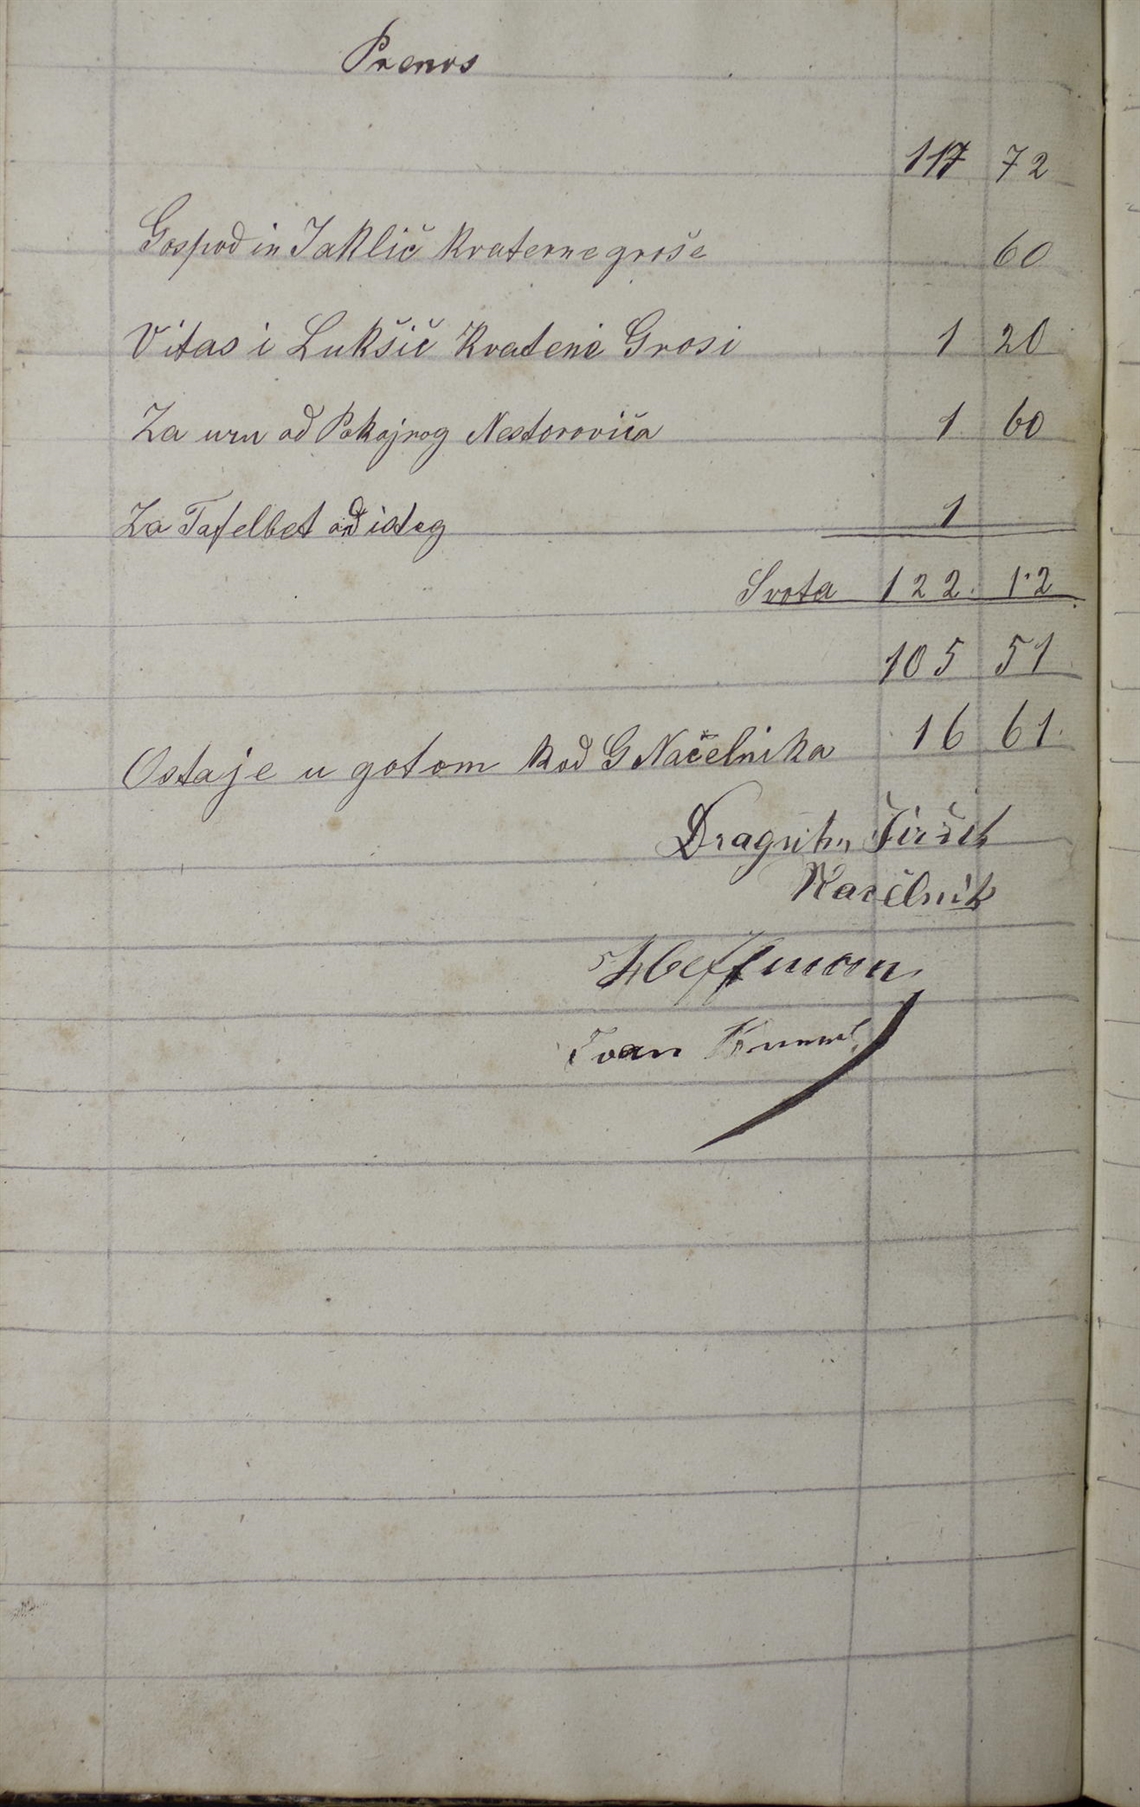 Prenos
117 72
Gospodin Jaklič kvaterne groše 60
Vitas i Lukšič Kvatene Grosi 1 20
Za uru od Pokojnog Nestorovića 1 60
Za Tafelbet od istog 1
Svota 122. 12
105 51
Ostaje u gotom kod G Načelnika 16 61.
Dragutin
Načelnik
Ivan